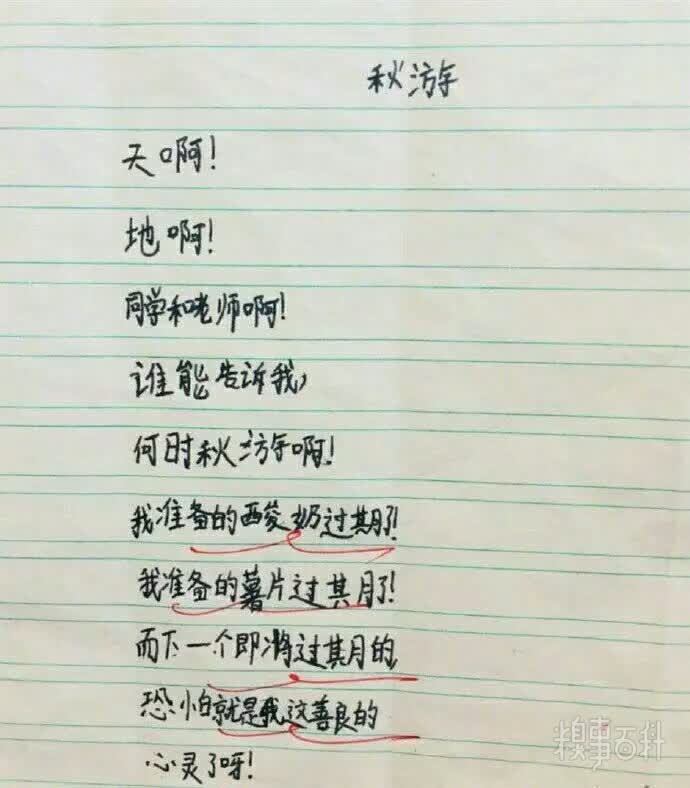 秋游
天啊！
地啊！
同学和老师啊！
谁能告诉我，
何时秋游啊！
我准备的酸奶过期了！
我准备的薯片过期了！
而下一个即将过期的
恐怕就是我这善良的
心灵了呀！
糗事百科